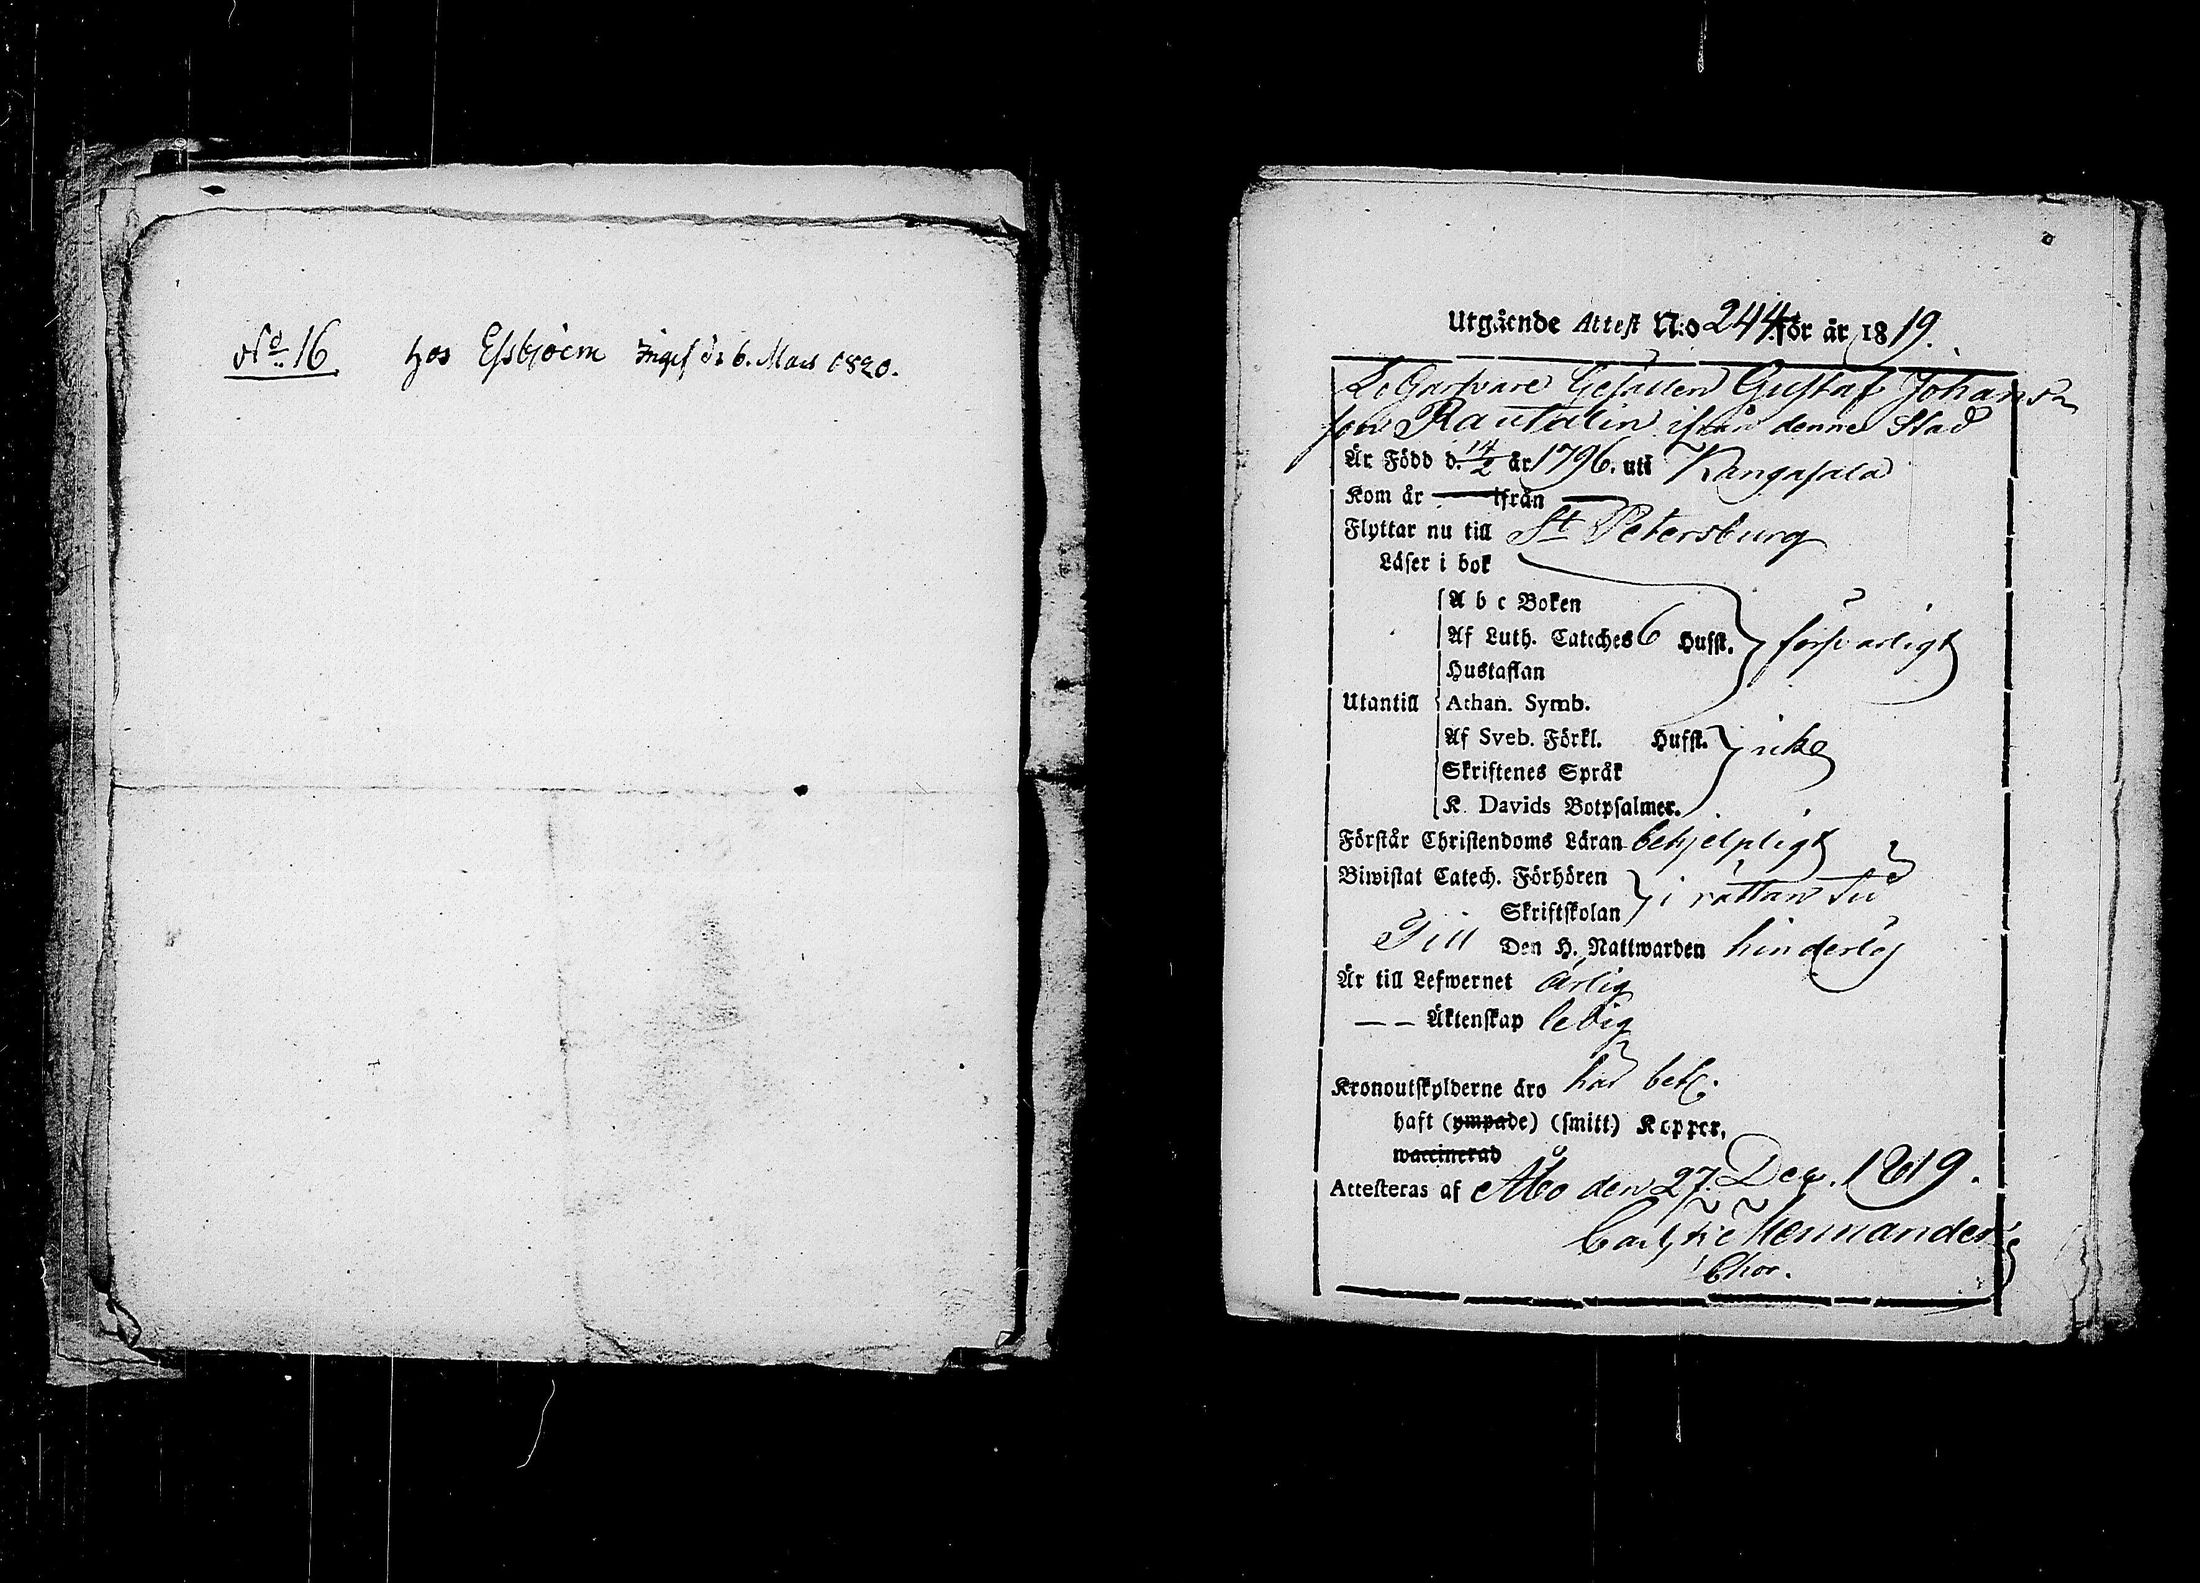 No 16 hos Essbjörn Ingif den 6. Mars 1820.
Utgående Attest N:o 244. för år 1819.
Garfvare Gesällen Gustaf Johans-
son Rautalin ifrån denne Stad
Är Född d. 14/2 år 1796. uti Kangasala
Kom år — ifrån —
Flyttar nu till St Petersburg
Läser i bok
A b c Boken
Af Luth. Cateches 6 Hufst. försvarligt
Hustaflan
Utantill Athan. Symb.
Af Sveb. Förkl. Hufst. icke
Skriftenes Språk
K. Davids Botpsalmer.
Förstår Christendoms Läran behjelpligt
Biwistat Catech. Förhören
Skriftskolan i rättan tid
Till Den H. Nattwarden hinderlös
Är till Lefwernet ärlig
— — Äktenskap ledig
Kronoutskylderne äro här bet.
haft (ympade) (smitt) Koppor,
waccinerad
Attesteras af Åbo den 27. Dec. 1819.
Mennander